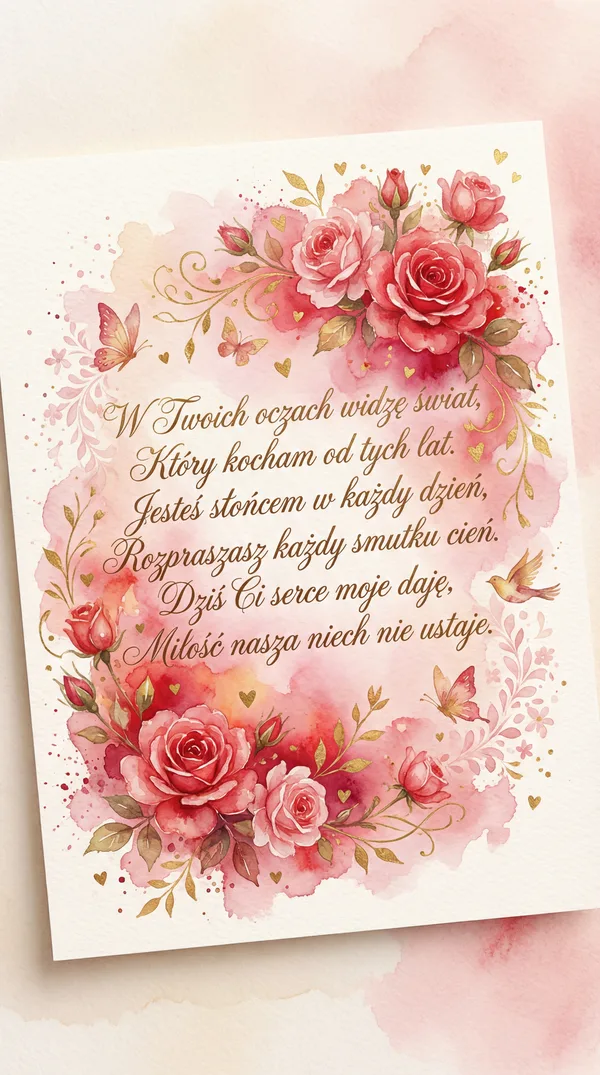 W Twoich oczach widzę świat,
Który kocham od tych lat.
Jesteś słońcem w każdy dzień,
Rozpraszasz każdy smutku cień.
Dziś Ci serce moje daję,
Miłość nasza niech nie ustaje.